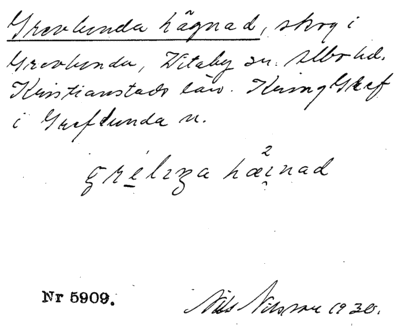 Grevlunda hägnad, skog i
Grevlunda, Vitaby sn. Albo hd.
Kristianstads län. Kring Gref
i Greflunda n.
hæi̯nad
Nr 5909.
Nils Nilsson 1930.